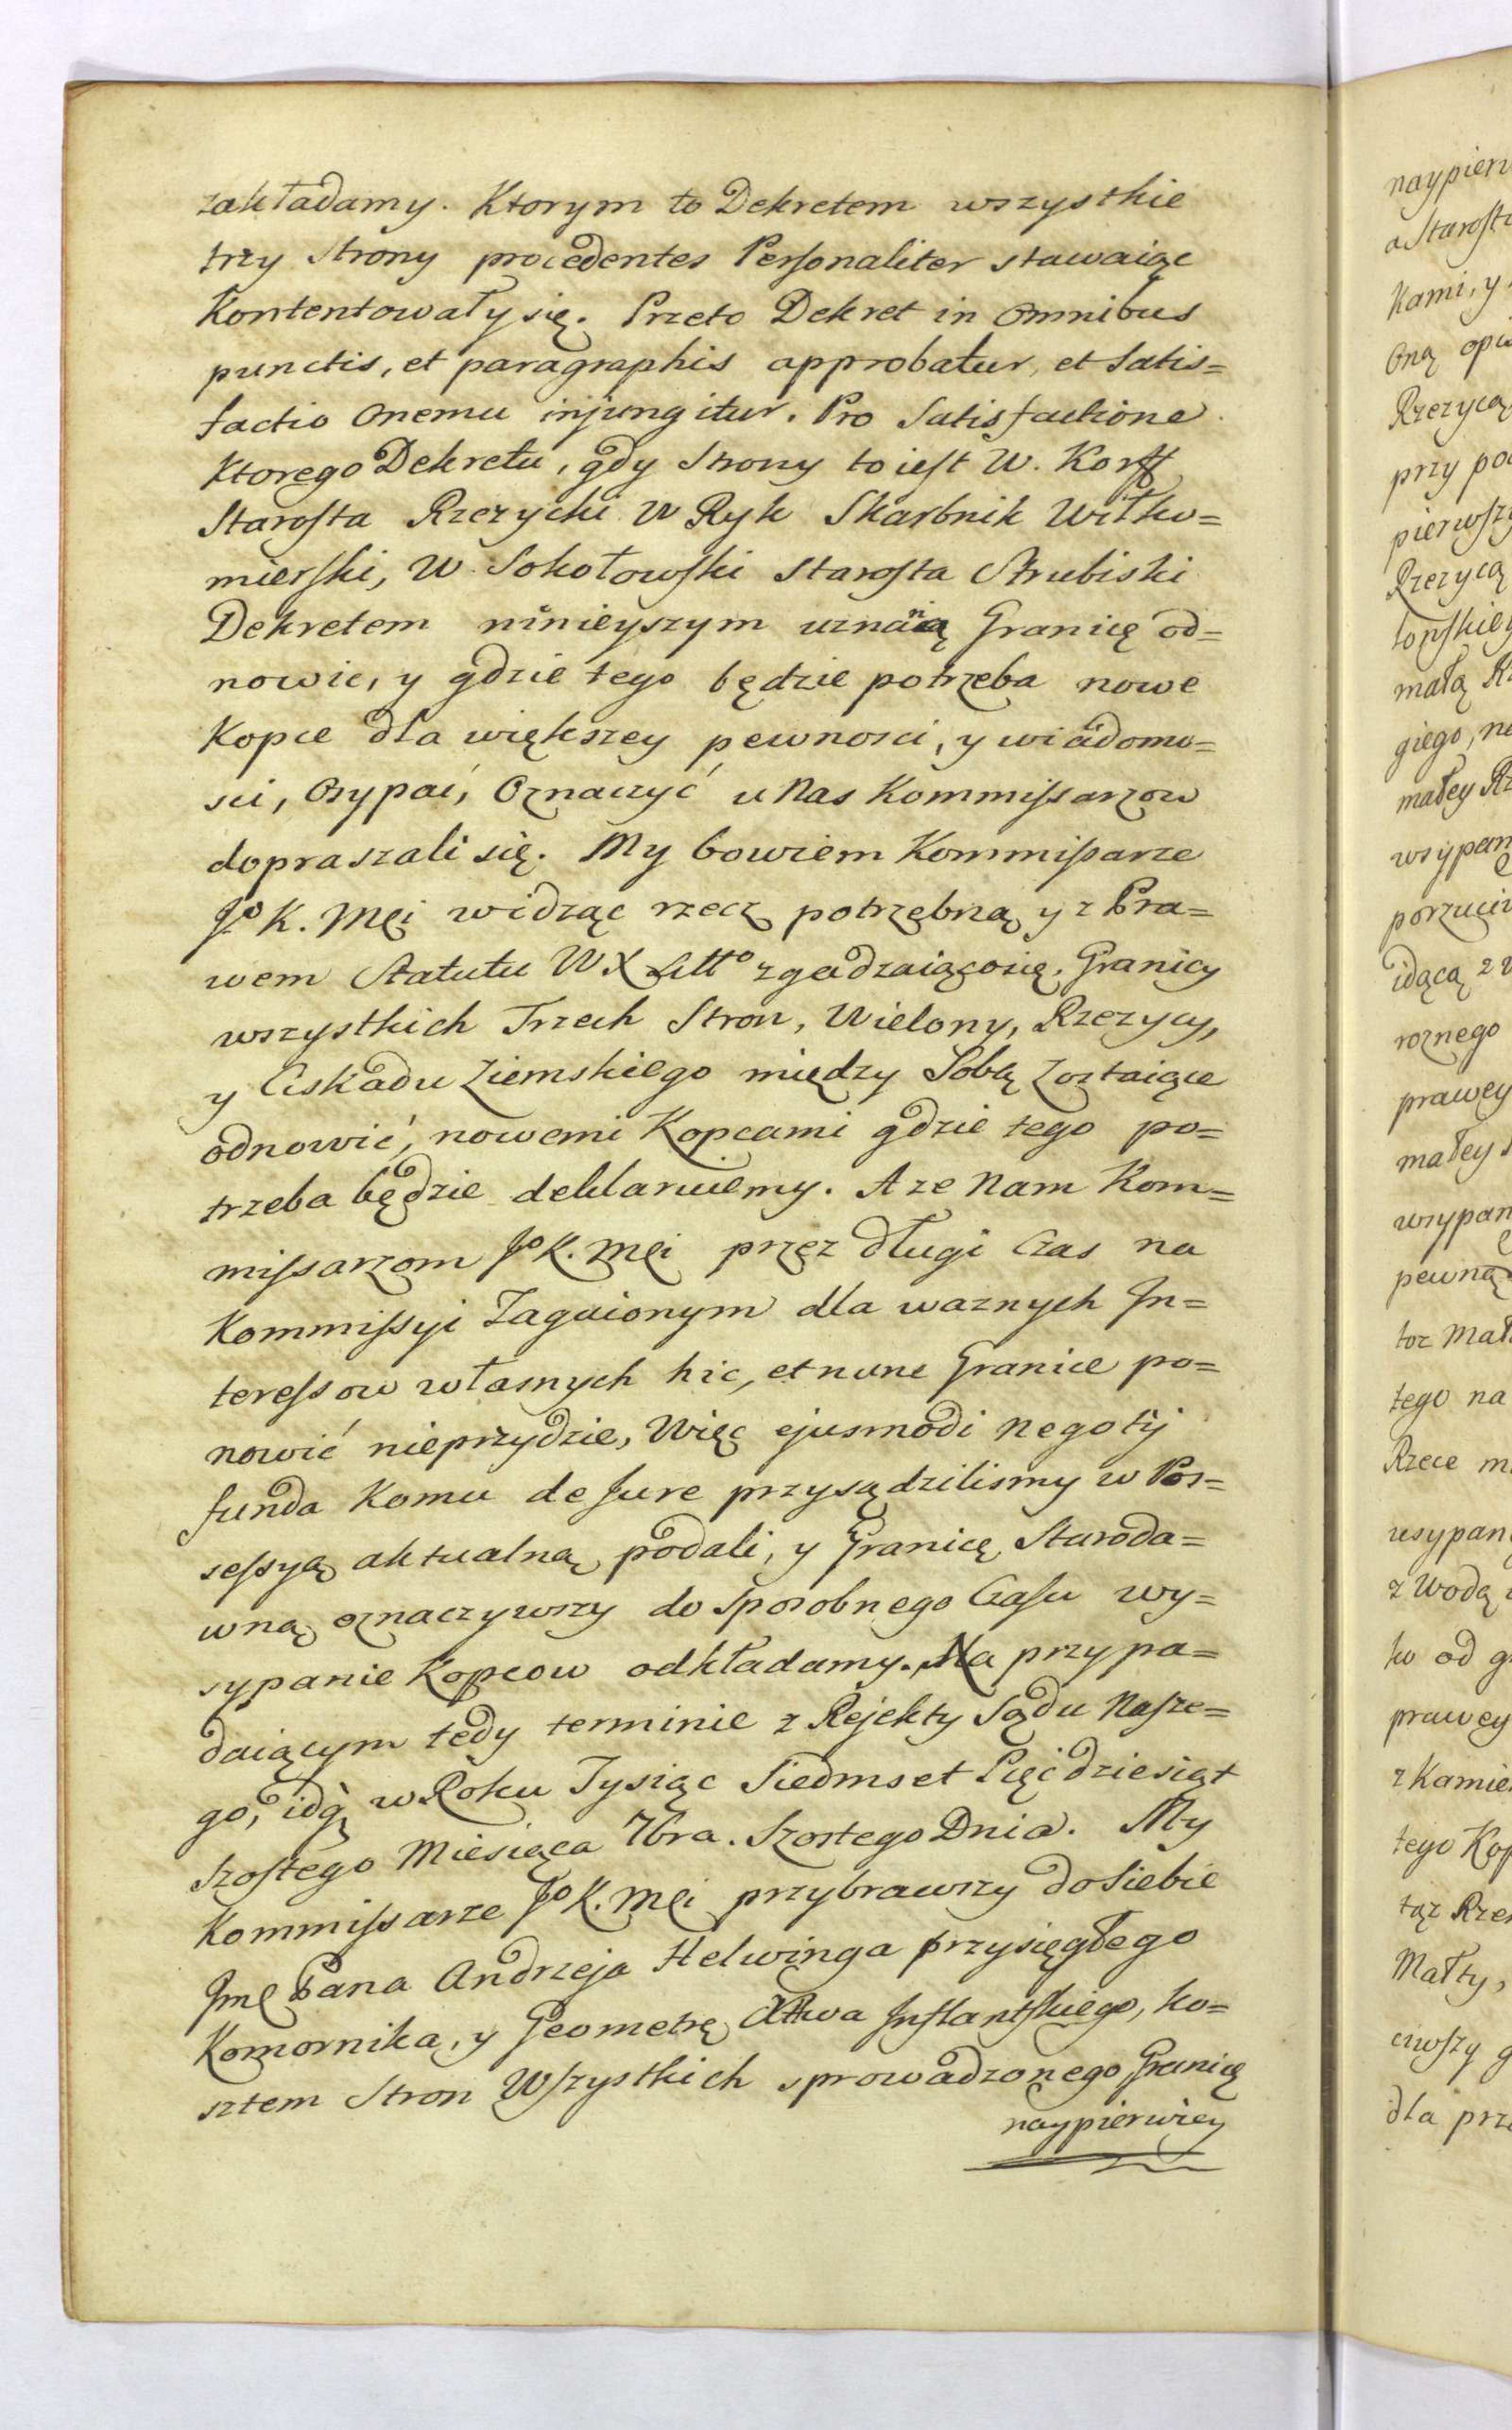 zakładamy. Ktorym to Dekretem wszystkie
trzy strony procedentes Personaliter stawaiąc
Kontentowały się. Przeto Dekret in omnibus
punctis, et paragraphis approbatur, et Satis=
factio onemu injungitur. Pro Satisfactione
Ktorego Dekretu, gdy Strony to iest W. Korff
Starosta Rzeżycki W Ryk Skarbnik Wiłko=
mierski, W Sokołowski Starosta Strubiski
Dekretem ninieyszym uznaną Granicę od=
nowic, y gdzie tego będzie potrzeba nowe
Kopce dla większey pewnosci, y wiadomo=
sci, Osypać, Oznaczyć u Nas Kommissarzow
dopraszali się. My bowiem Kommissarze
Jo K. Mci widząc rzecz potrzebną y z Pra=
wem Statutu W X Litto zgadzaiącosię, Granicy
wszystkich Trzech Stron, Wielony, Rzezycy,
y Uskadu Ziemskiego między Sobą Zoztaiące
odnowić, nowemi Kopcami gdzie tego po=
trzeba będzie deklaruiemy. A ze Nam Kom=
missarzom Jo K. Mci przez długi Czas na
Kommissyi Zagaionym dla waznych In=
teressow własnych hic, et nunc Granice po=
nowić nieprzydzie, Więc ejusmodi negotij
funda Komu de Jure przysądzilismy w Pos=
sessyą aktualną podali, y Granicę Staroda=
wną oznaczywszy do sposobnego Czasu wy=
sypanie Kopcow odkładamy. Na przypa=
daiącym tedy terminie z Rejekty Sądu Nasze=
go, idą w Roku Tysiąc Siedmset Pięćdziesiąt
Szostego Miesiąca 7bra. Szostego Dnia. My
Kommissarze Jo K. Mci przybrawszy do Siebie
Jmć Pana Andrzeja Helwinga przysięgłego
Komornika, y Geometrę Xtwa Inflantskiego, ko=
sztem Stron Wszystkich sprowadzonego Granicę
naypierwiey
naypierw
a Starost
Kami, y
Oną opi
Rzezycą
przy po
pierwsz
Rzezycą
małą Rz
giego, na
małey Rz
wsypan
porzuci
idącą z
roznego
prawey
małey
wsypan
pewną
toz Mał
tego na
Rzece m
usypan
z Wodą
ko od g
prawey
z Kamie
tego Kop
tąz Rze
Małty,
dla prz